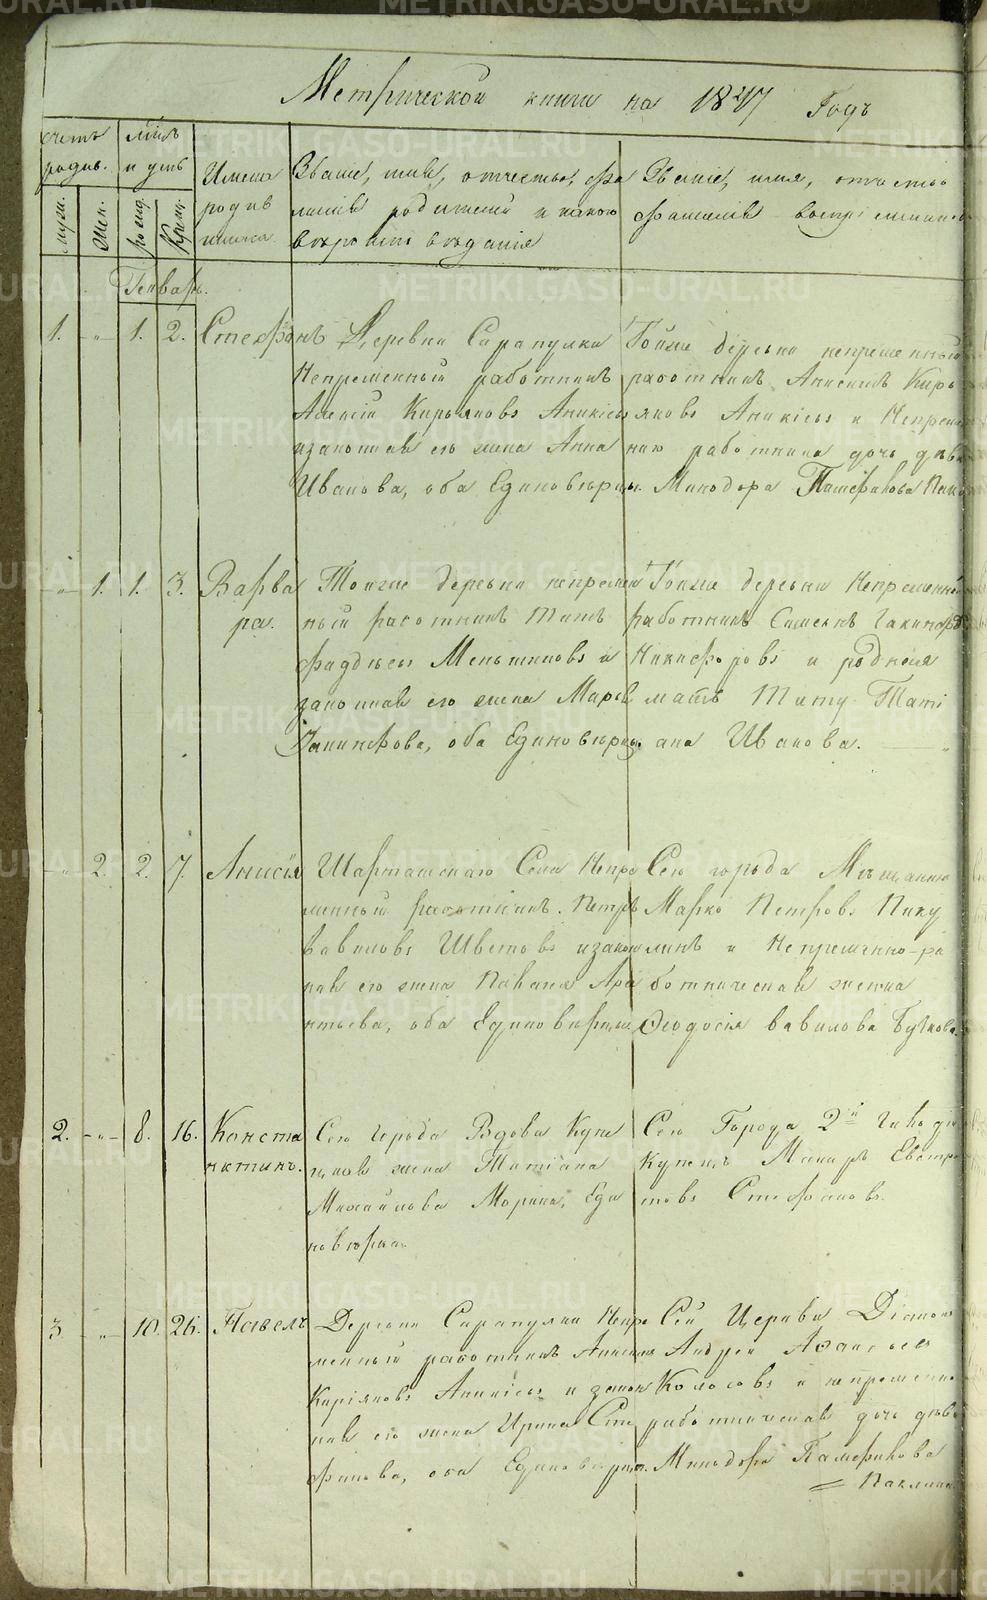 Метрической книги на 1847 Годъ
счетъ родив.
муж.
жен.
м-цъ и день
рожд.
Крещ.
Имена
родив
шихся.
Званіе, имя, отчество, фа
милія родителей и какого
вѣроисповѣданія
Званіе, имя, отчество
фамилія воспріемников
Генварь.
1. „ 1. 2. Стефанъ
Деревни Сарапулки
Непременный работникъ
Алексій Кирьяновъ Аникіевъ
изаконная его жена Анна
Иванова, оба Единоверцы.
Тойже деревни непременный
работникъ Анисимъ Кирь
яновъ Аникіевъ и Непремен
наго работника дочь девка
Минодора Памфилова
„ 1. 1. 3. Варва
ра.
Тойже деревни непремен
ный работникъ Титъ
Фаддеевъ Меньшиковъ и
законная его жена Марья
оба Единоверцы.
Тойже деревни Непременный
работникъ Симеонъ
Никифоровъ и родная
мать Титу Тати
ана Иванова.
„ 2. 2. 7. Анисія
Шарташскаго Села Непре
менный работникъ. Петръ
Вавиловъ Шветовъ изакон
ная его жена
оба Единоверцы
Сего города Мѣщанинъ
Марко Петровъ Пику
линъ и Непременно-ра
ботническая жена
Феодосія Вавилова
2. „ 8. 16. Конста
нтинъ.
Сего города Вдова Купе
ческая жена Татіана
Михайлова Еди
новѣрка.
Сего Города 2й Гильдіи
Купецъ Макаръ Евстра
товъ
3. „ 10. 26. Павелъ
Деревни Сарапулки Непре
менный работникъ Анисимъ
Киріяновъ Аникіевъ и закон
ная его жена Ирина Сте
фанова, оба Единоверцы.
Сей Церкви Діаконъ
Андрей Афанасьевъ
Колосовъ и непременно
работническая дочь девка
Минодора Памфилова